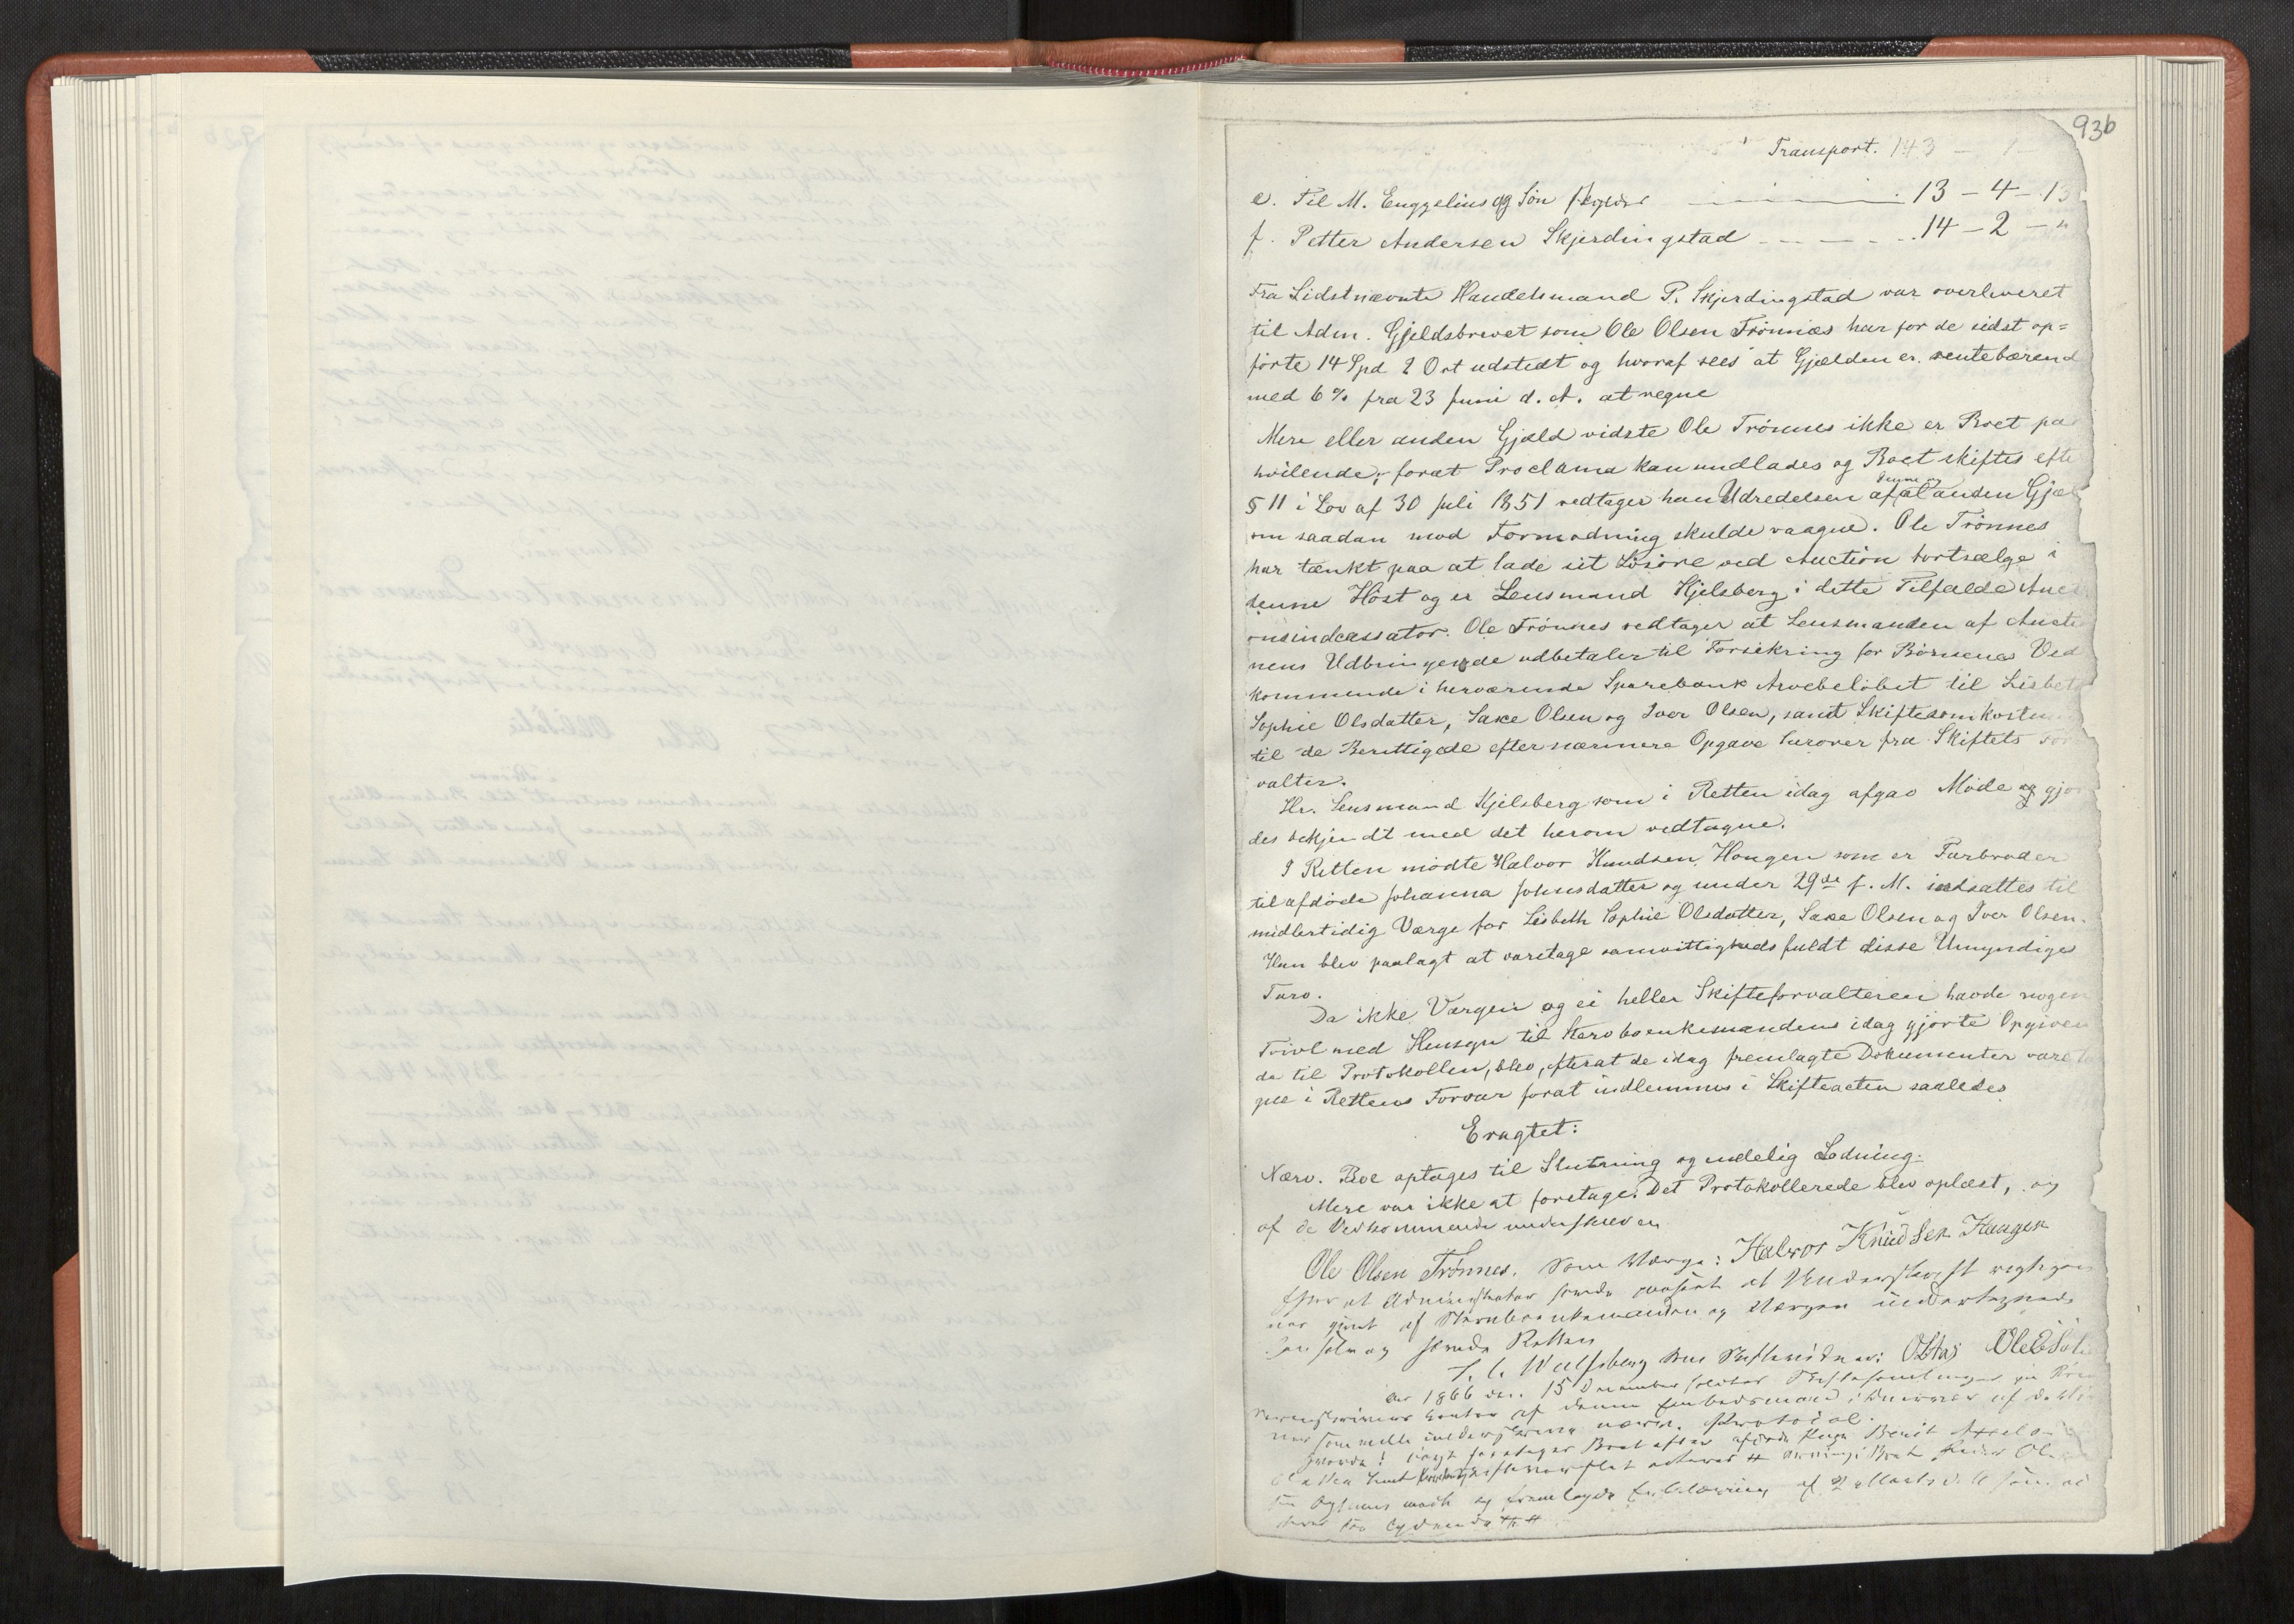 93b
Transport. 143 – 1
e. Til M. Enggelius og Søn skyldes 13 – 4 – 13
f. Petter Andersen Skjerdingstad 14 – 2 – "
Fra Sidstnævnte Handelsmand P. Skjerdingstad var overleveret
til Adm. Gjeldsbrevet som Ole Olsen Trønnes har for de sidst op=
førte 14 Spd 2 Ort udstedt og hvoraf sees at Gjælden er rentebærend
med 6 % fra 23 Juni d. A. at regne
Mere eller anden Gjæld vidste Ole Trønnes ikke er Boet paa
hvilende; forat Proclama kan undlades og Boet skiftes efte
§ 11 i Lov af 30 Juli 1851 vedtager han Udredelsen af denne og al anden Gjæl
om saadan mod Formodning skulde vaagne. Ole Trønnes
har tænkt paa at lade sit Løsøre ved Auction bortsælge i
denne Høst og er Lensmand Kjelsberg i dette Tilfælde Auct
onsindcassator. Ole Trønnes vedtager at Lensmanden af Aucti
nens Udbringende udbetaler til Forsikring for Børnenes Ved
kommende i herværende Sparebank Arvebeløbet til Lisbeth
Sophie Olsdatter, Saxe Olsen og Iver Olsen, samt Skiftesomkostn
til de Berettigede efter nærmere Opgave herover fra Skiftets for
valter.
Hr. Lensmand Kjelsberg som i Retten idag afgav Møde og gjor
des bekjendt med det herom vedtagne.
I Retten mødte Halvor Knudsen Haugen som er Farbroder
til afdøde Johanna Johnsdatter og under 29de f. M. indsattes til
midlertidig Værge for Lisbeth Sophie Olsdatter, Saxe Olsen og Iver Olsen.
Han blev paalagt at varetage samvittighedsfuldt disse Umyndiges
Tarv.
Da ikke Værgen og ei heller Skifteforvalteren havde nogen
Tvivl med Hensyn til Stervboenkemandens idag gjorte Opgiven
de til Protokollen, blev, efterat de idag fremlagte Dokumenter vare ta
gne i Rettens Forvar forat indlemmes i Skifteacten saaledes
Eragtet:
Nærv. Boe optages til Slutning og endelig Lodning.
Mere var ikke at foretage. Det Protokollerede blev oplæst, og
af de Vedkommende underskreven
Ole Olsen Trønnes. som Værge: Halvor Knudsen Haugen
efter at Administrator havde paaseet at Underskrift rigtigen
var gjort af Stervboenkemanden og Værgen undertegnede
han selv og hævede Retten
Wulfsberg som Skiftevidner:
Aar 1866 den 15 December holdtes Skiftesamling paa
skriverens Kontor af denne Embedsmand i Overvær af de Vid
ner som med underskrive nærv. Protocol.